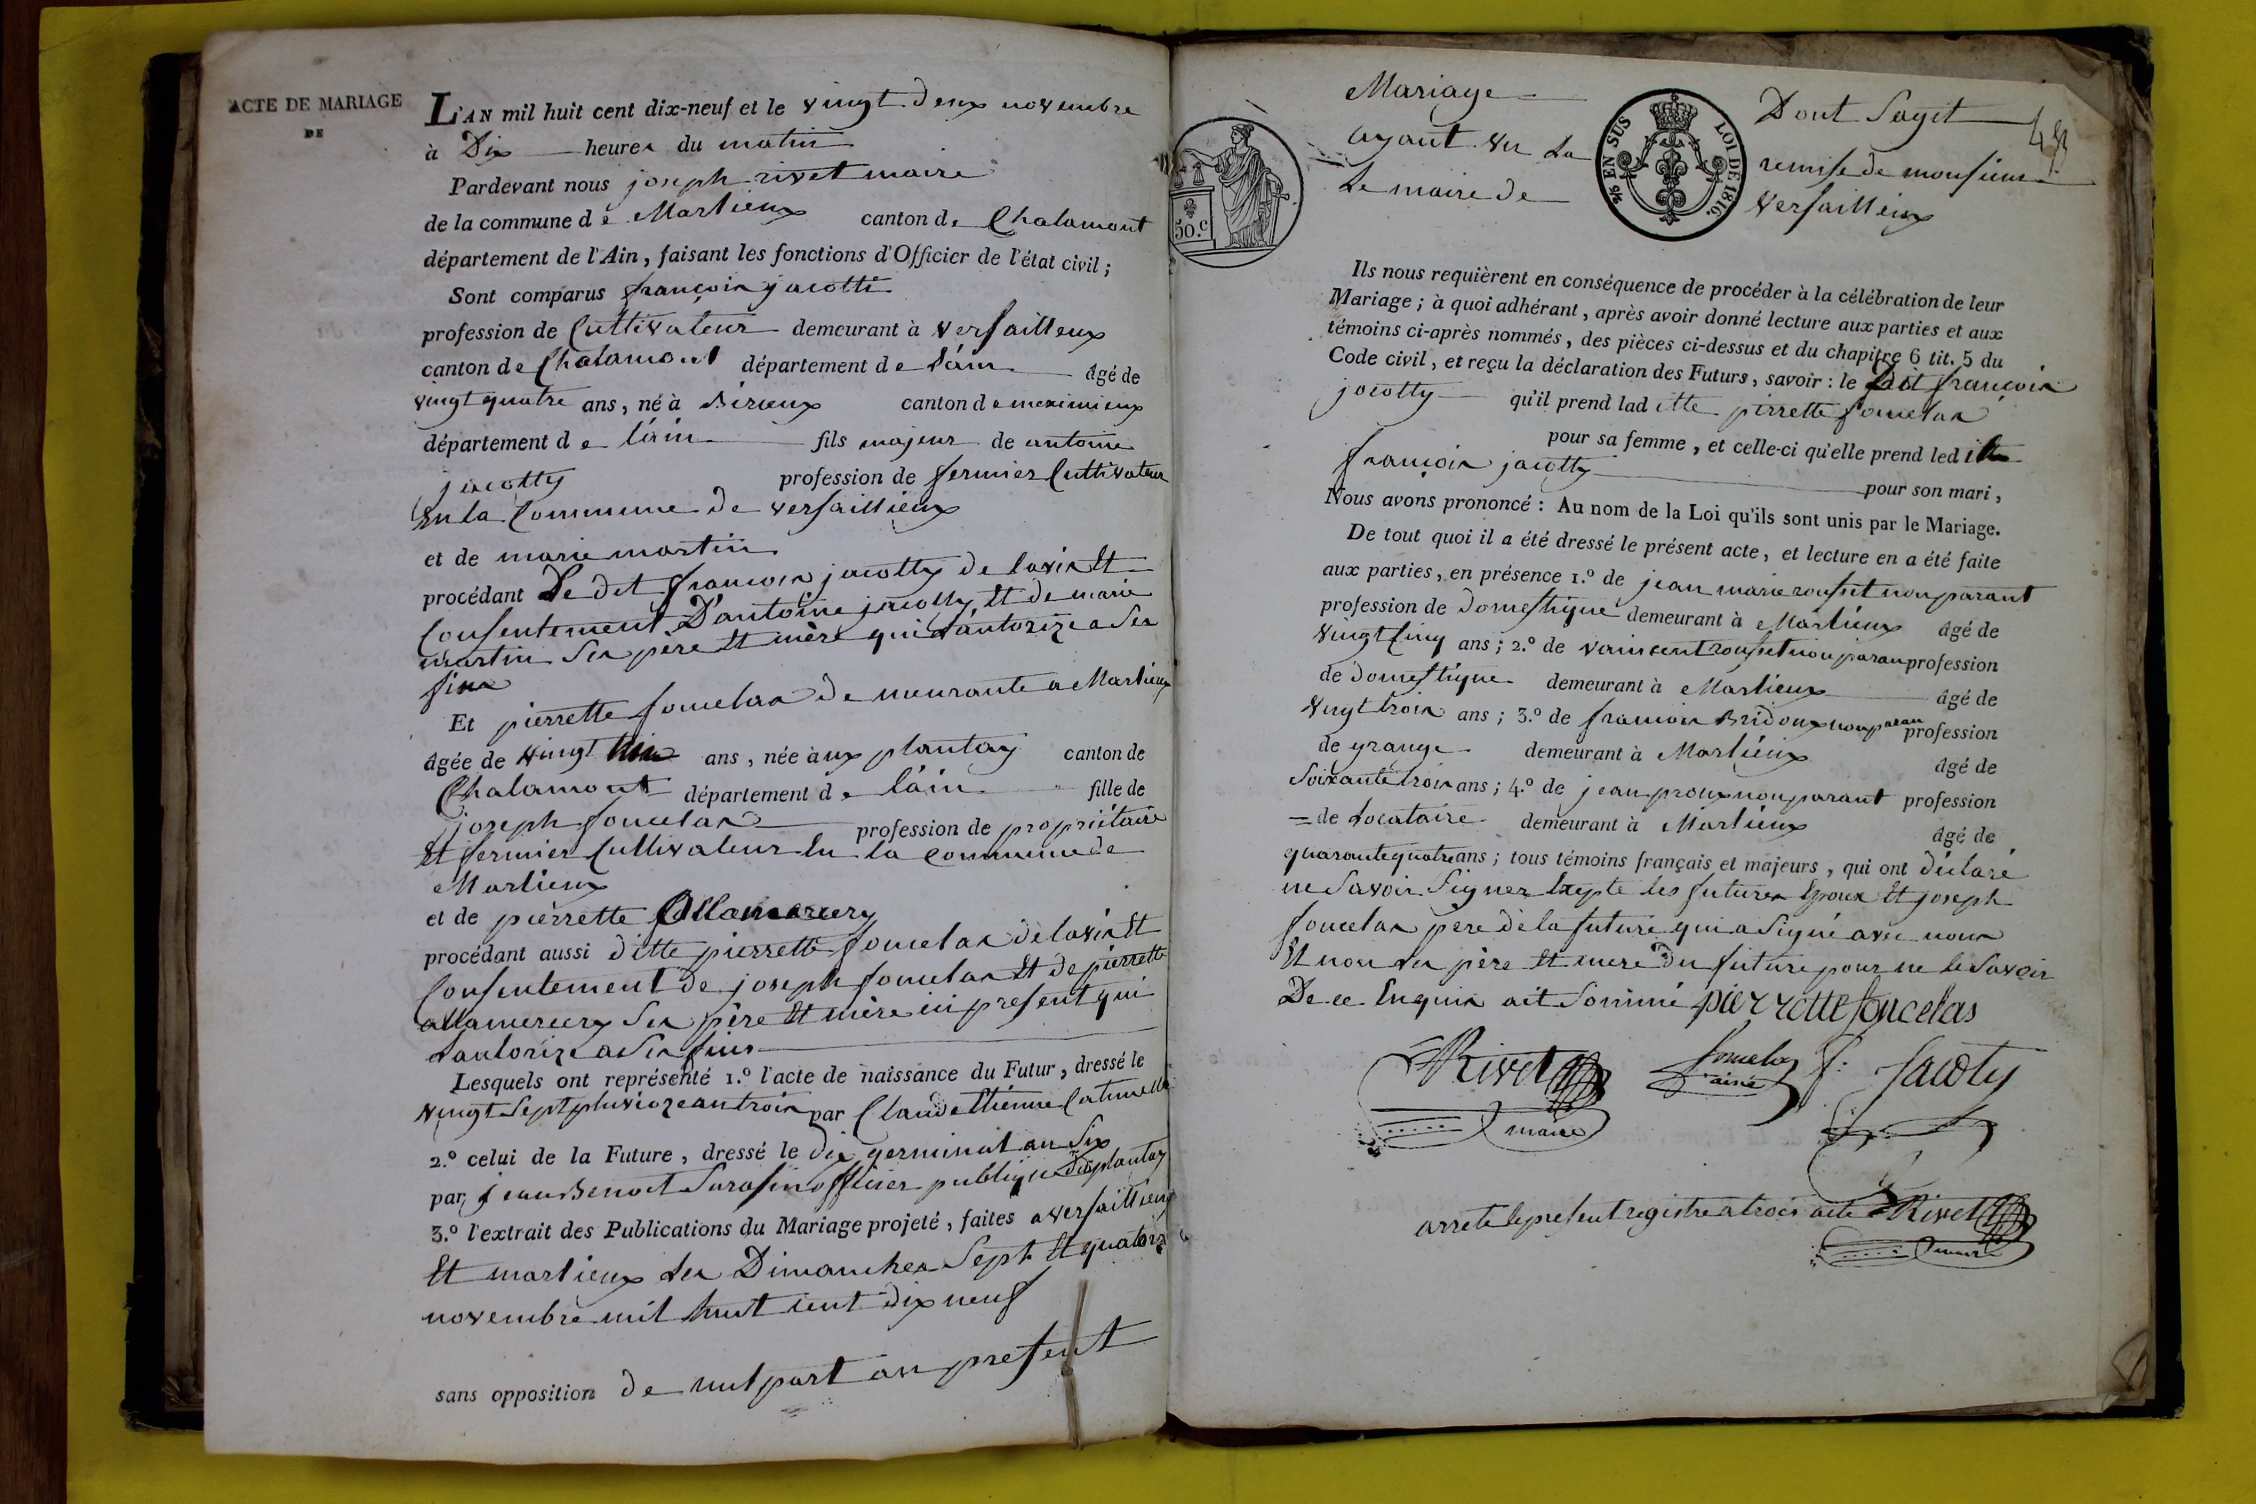 ACTE DE MARIAGE
DE
L'AN mil huit cent dix-neuf et le vingt deux novembre
à Dix heures du matin
Pardevant nous joseph rivet maire
de la commune de Marlieux canton de Chalamont
département de l'Ain, faisant les fonctions d'Officier de l'état civil ;
Sont comparus françois jacotti
profession de Cultivateur demeurant à versailleux
canton de Chalamont département de láin âgé de
vingt quatre ans, né à Birieux canton de meximieux
département de láin fils majeur de antoine
jacotty profession de fermier Cultivateur
En la Commune de versaillieux
et de marie martin
procédant Le dit francois jacotty de lavis Et
Consentement D'antoine jacotty Et de marie
martin Ses père Et mère qui L'autorize a Ses
fins
Et pierrette foucelas demeurante a Marlieux
âgée de vingt ans, née àux plantay canton de
Chalamont département de láin fille de
joseph foucelas profession de propriétaire
Et fermier Cultivateur En la Commune de
Marlieux
et de pierrette Allamercery
procédant aussi ditte pierrette foucelas de lavis Et
Consentement de joseph foucelas Et de pierrette
allamercery Ses père Et mère ici present qui
Lautorize a Ses fins
Lesquels ont représenté 1.º l'acte de naissance du Futur, dressé le
vingt Sept pluvioze an trois par Claude Etienne
2.º celui de la Future, dressé le dix germinal an Six
par jean Benoit Sarasin officier publique du plantay
3.º l'extrait des Publications du Mariage projeté, faites a versaillieux
Et marlieux les Dimanches Sept Et quatorze
novembre mil huit cent dix neuf
sans opposition de nul part au present
Mariage Dont Sagit
ayant vu La remise de monsieur
Le maire de versaillieux
48
50.c
EN SUS
LOI DE 1816.
Ils nous requièrent en conséquence de procéder à la célébration de leur
Mariage ; à quoi adhérant, après avoir donné lecture aux parties et aux
témoins ci-après nommés, des pièces ci-dessus et du chapitre 6 tit. 5 du
Code civil, et reçu la déclaration des Futurs, savoir : le Dit françois
jocotty qu'il prend laditte pirrette foucelas
pour sa femme, et celle-ci qu'elle prend led
françois jacotty pour son mari,
Nous avons prononcé : Au nom de la Loi qu'ils sont unis par le Mariage.
De tout quoi il a été dressé le présent acte, et lecture en a été faite
aux parties, en présence 1.º de jean marie rousset non parant
profession de domestique demeurant à Marlieux âgé de
vingt Cinq ans ; 2.º de vaincent rousset non paran profession
de domestique demeurant à Marlieux âgé de
vingt trois ans ; 3.º de francois Bridoux non paran profession
de grange demeurant à Marlieux âgé de
Soixante trois ans ; 4.º de jean proux non parant profession
de Locataire demeurant à Marlieux âgé de
quarante quatre ans ; tous témoins français et majeurs, qui ont déclaré
ne Savoir Signer Exepte les futures Epoux Et joseph
foucelas pere de la future qui a Signé avec nous
Et non les père Et mere du future pour ne le Savoir
De ce Enquis ait Sommé pierrette foucelas
Rivet foucelas f. Jacoty
maire ainé
arrete le present registre a trois acte Rivet
maire